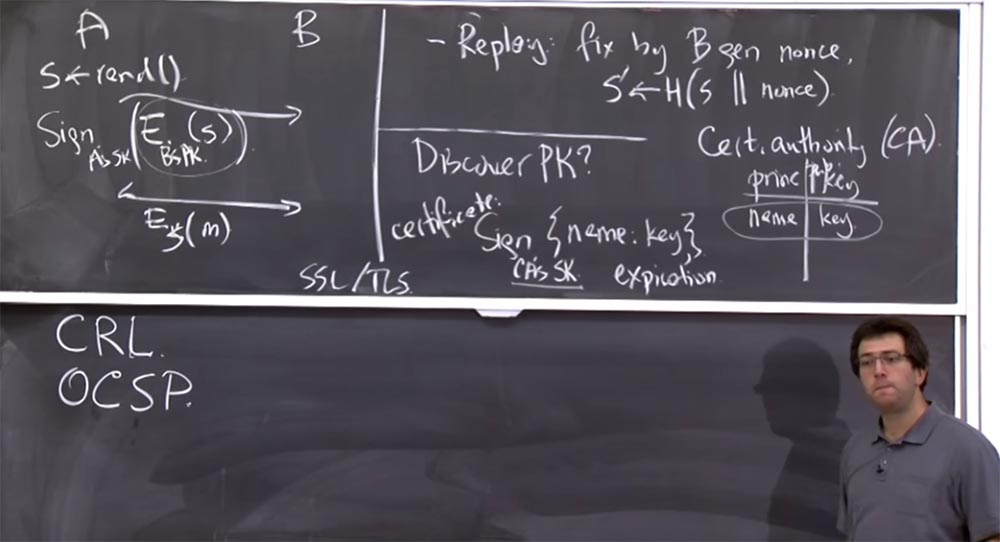 A B
S ← rand()
Sign A's SK (E B's PK (s))
E S' (m)
SSL/TLS
- Replay: fix by B gen nonce,
S' ← H(s || nonce)
Discover PK?
certificate:
Sign {name: key}
CA's SK expiration
Cert. authority (CA).
princ | key
name | key
CRL.
OCSP.